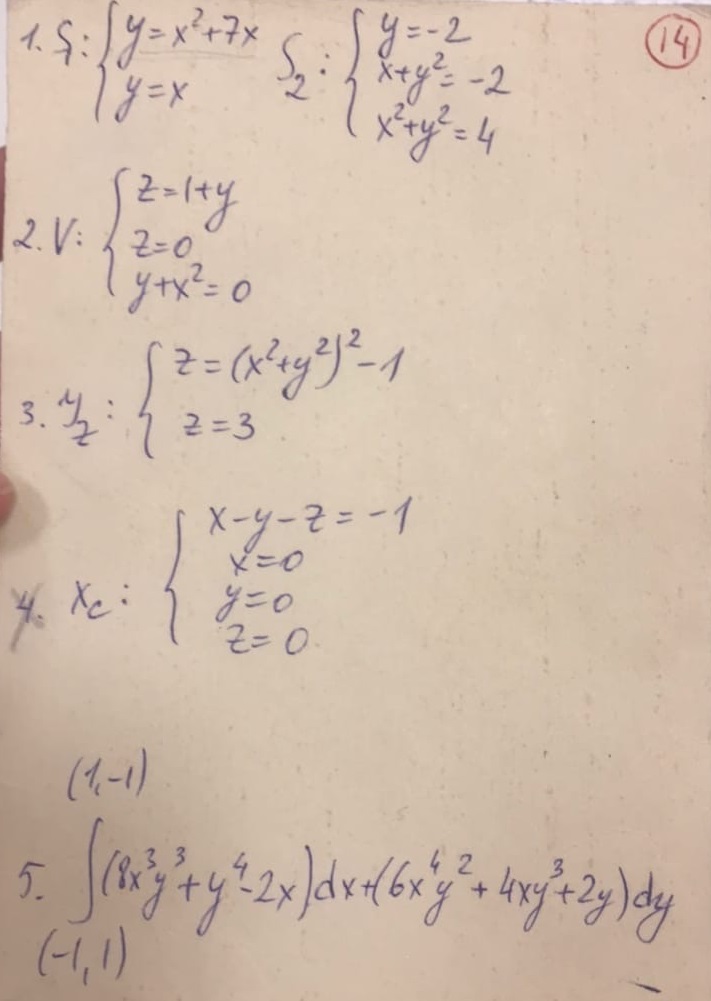 1. S₁: { y=x²+7x
y=x
S₂: { y=-2
x+y²=-2
x²+y²=4
14
2. V: { z=1+y
z=0
y+x²=0
3. y_z: { z=(x²+y²)²-1
z=3
4. x_c: { x-y-z=-1
x=0
y=0
z=0
(1,-1)
5. ∫(8x³y³+y⁴-2x)dx+(6x⁴y²+4xy³+2y)dy
(-1,1)